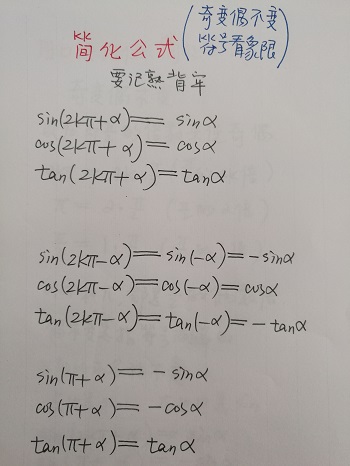 简化公式(奇变偶不变
符号看象限)
要记熟背牢
sin(2kπ+α)=sinα
cos(2kπ+α)=cosα
tan(2kπ+α)=tanα
sin(2kπ-α)=sin(-α)=-sinα
cos(2kπ-α)=cos(-α)=cosα
tan(2kπ-α)=tan(-α)=-tanα
sin(π+α)=-sinα
cos(π+α)=-cosα
tan(π+α)=tanα